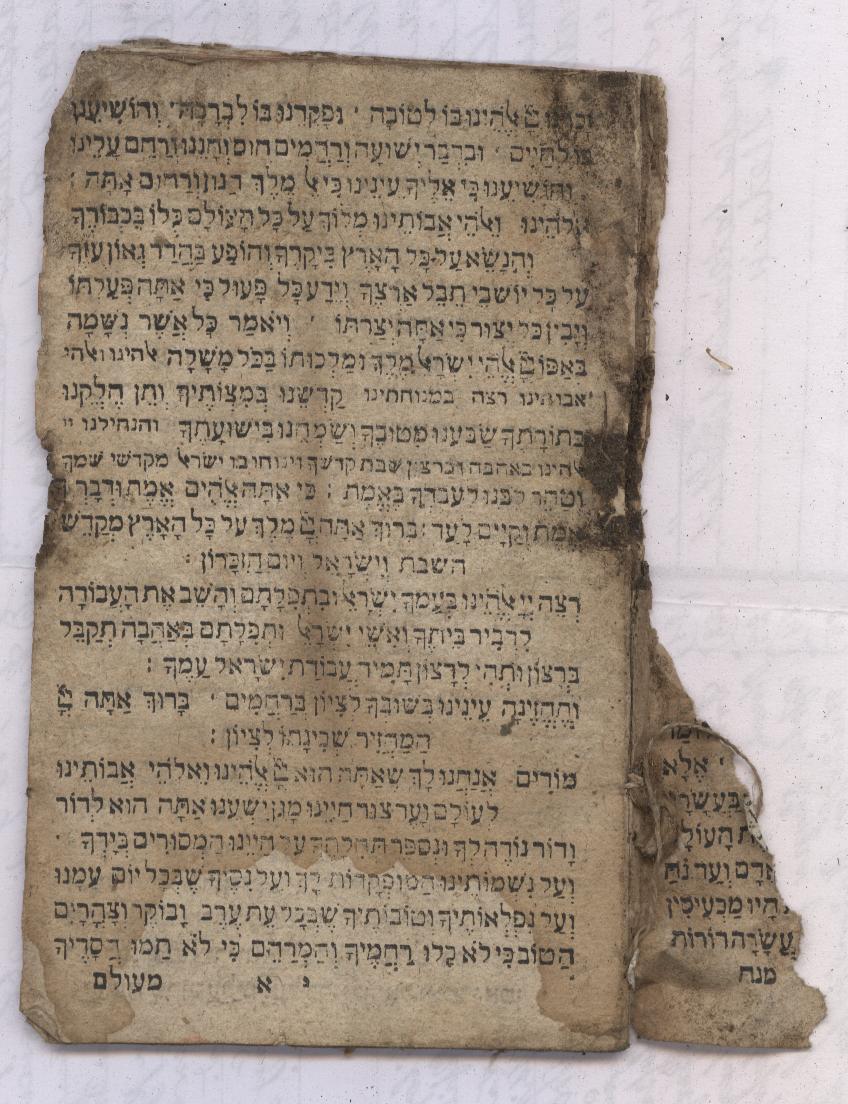 אלהינו בו לטובה ׳ ופקדנו בו לברכה׳ והושיענו
בו לחיים ׳ ובדבר ישועה ורחמים חוס וחננו ורחם עלינו
והושיענו כי אליך עינינו כי אל מלך חנון ורחום אתה :
אלהינו ואלהי אבותינו מלוך על כל העולם כלו בכבודך
והנשא על כל הארץ ביקרך והופע בהדר גאון עוזך
על כל יושבי תבל ארצך וידע כל פעול כי אתה פעלתו
ויבין כל יצור כי אתה יצרתו ׳ ויאמר כל אשר נשמה
באפו יי אלהי ישראל מלך ומלכותו בכל משלה אלהינו ואלהי
אבותינו רצה במנוחתינו קדשנו במצותיך ותן חלקנו
בתורתך שבענו מטובך ושמחנו בישועתך והנחילנו יי
אלהינו באהבה וברצון שבת קדשך וינוחו בו ישראל מקדשי שמך
וטהר לבנו לעבדך באמת : כי אתה אלהים אמת ודברך
אמת וקיים לעד ׃ ברוך אתה יי מלך על כל הארץ מקדש
השבת וישראל ויום הזכרון
רצה יי אלהינו בעמך ישראל ובתפלתם והשב את העבודה
לדביר ביתך ואשי ישראל ותפלתם באהבה תקבל
ברצון ותהי לרצון תמיד עבודת ישראל עמך :
ותחזינה עינינו בשובך לציון ברחמים ׳ ברוך אתה יי
המחזיר שכינתו לציון :
מודים אנחנו לך שאתה הוא יי אלהינו ואלהי אבותינו
לעולם ועד צור חיינו מגן ישענו אתה הוא לדור
ודור נודה לך ונספר תהלתך על חיינו המסורים בידך
ועל נשמותינו הפקודות לך ועל נסיך שבכל יום עמנו
ועל נפלאותיך וטובותיך שבכל עת ערב ובוקר וצהרים
הטוב כי לא כלו רחמיך והמרחם כי לא תמו חסדיך
י א מעולם
׳ אלא
בעשרי
ת העולם
אדם ועד נח
היו מכעיסין
עשרה דורות
מנח